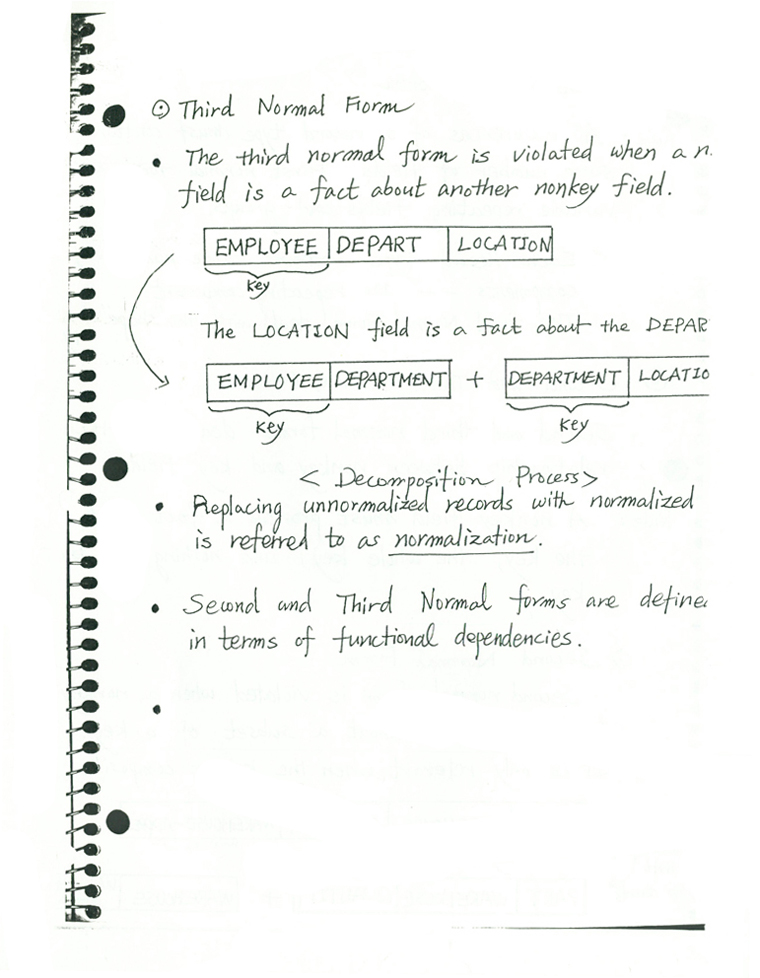 ⊙ Third Normal Form
• The third normal form is violated when a n
field is a fact about another nonkey field.
EMPLOYEE DEPART LOCATION
key
The LOCATION field is a fact about the DEPAR
EMPLOYEE DEPARTMENT + DEPARTMENT LOCATIO
key key
< Decomposition Process >
• Replacing unnormalized records with normalized
is referred to as normalization.
• Second and Third Normal forms are define
in terms of functional dependencies.
•